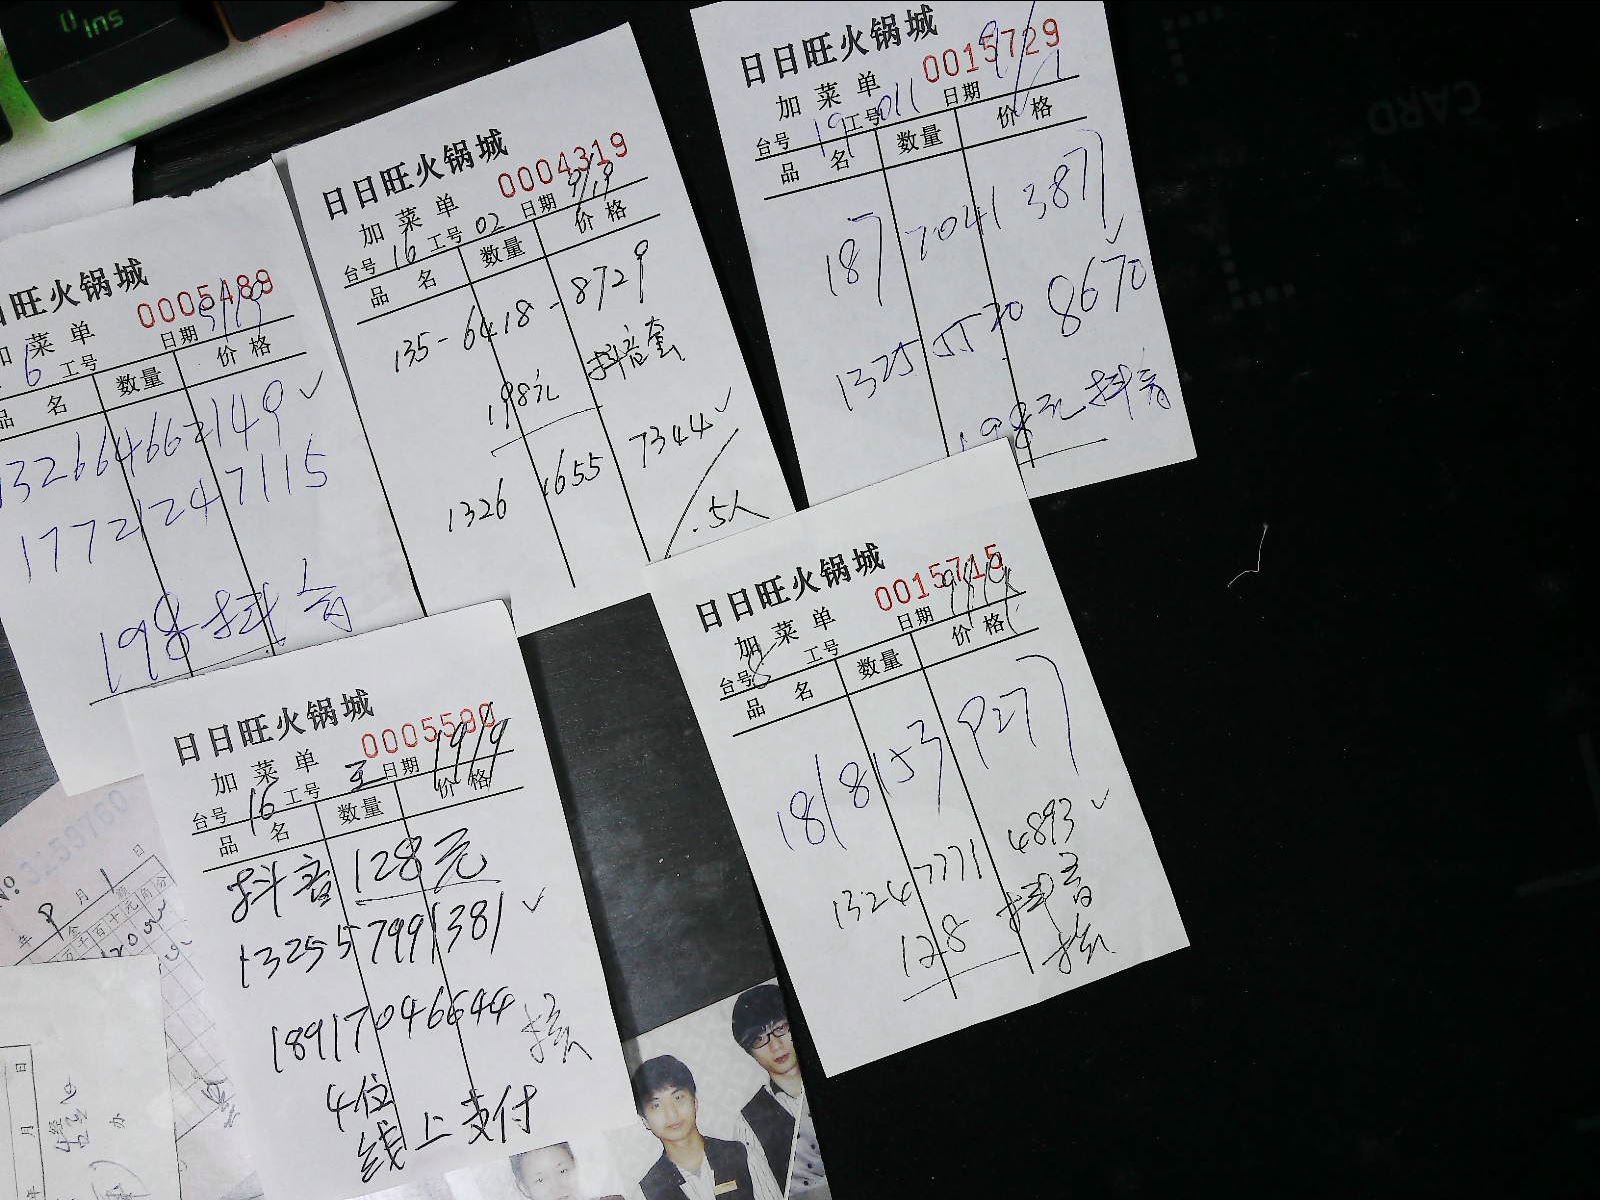 日日旺火锅城
0015729
加菜单
台号 19 工号 011 日期 9/1
品名 数量 价格
187 7041 3877
1325 5530 8670
198元抖音
日日旺火锅城
0004319
加菜单
台号 16 工号 02 日期 9/19
品名 数量 价格
135-6418-8729
198元 抖音套
1326 1655 7344
.5人
日旺火锅城
0005489
加菜单
6 工号 日期 9/19
品名 数量 价格
132664662149
17721247115
198 抖音
日日旺火锅城
0015715
加菜单
台号 8 工号 日期 9/19
品名 数量 价格
1818153 9277
1324 7771 4893
128 抖音
日日旺火锅城
0005590
加菜单
台号 16 工号 王 日期 19/9
品名 数量 价格
抖音 128元
132557991381
18917046644
4位
线上支付
No
年 9 月 1 日
月 日
CARD